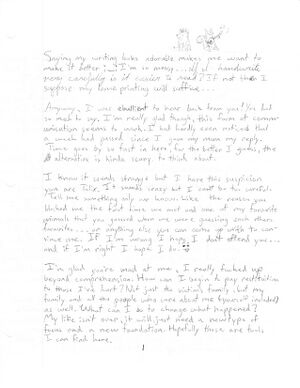 Saying my writing looks adorable makes me want to
make it better; I'm so messy... If I handwrite
very carefully is it easier to read? If not then I
suppose my lame printing will suffice...
Anyway, I was ebullient to hear back from you! You had
so much to say. I'm really glad though, this form of comm-
unication seems to work. I had hardly even noticed that
a week had passed since I gave my mom my reply.
Time goes by so fast in here, for the better I guess, the
alternative is kinda scary to think about.
I know it sounds strange but I have this suspicion
you are. It sounds crazy but I can't be too careful.
Tell me something only we know: like the reason you
blocked me the first time we met and one of my favorite
animals that you guessed when we were guessing each others
favorites... or anything else you can come up with to con-
vince me. If I'm wrong I hope I don't offend you...
and if I'm right I hope I do.
I'm glad you're mad at me, I really fucked up
beyond comprehension. How can I begin to pay restitution
to those I've hurt? Not just the victims family, but my
family and all the people who care about me (yourself included)
as well. What can I do to change what happened?
My life isn't over, it will just need a new type of
focus and a new foundation. Hopefully those are tools
I can find here.
1